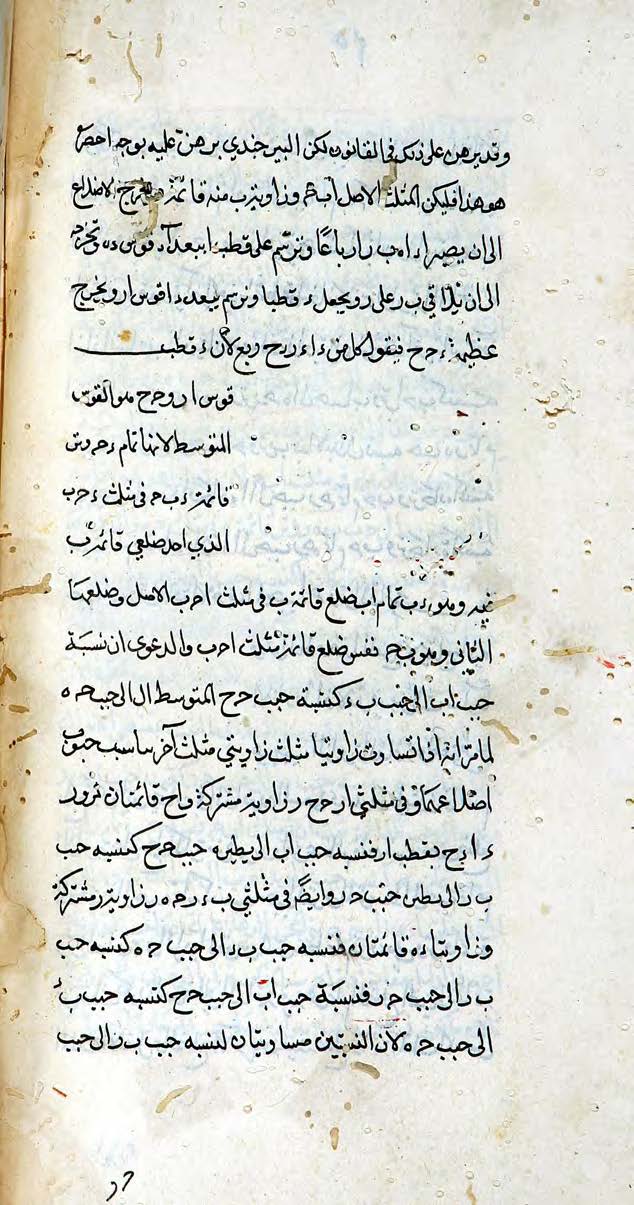 وقد برهن على ذلك في القانون لكن البيرجندي برهن عليه بوجه احصر
هو هذا فليكن المثلث الاصل اب ح وزاوية ب منه قائمة الاضلاع
الى ان يصير ارباعا ونرسم على قطب ا ببعد اء قوس
الى ان يلاقي ب ر على ر ويجعل ء قطبا ونرسم ببعد ء ا قوس ا ر ويخرج
عظيمة ء ح ح فيقول كل من ء ا ء ر ء ح ربع لان ء قطب
قوس ا ر و ح ح هو القوس
المتوسط لانها تمام ء ح و من
قائمة ء ب ح في مثلث ء ح ب
الذي احد ضلعي قائمة ب
فيه وهو ء ب تمام اب ضلع قائمة ب في مثلث ا ح ب الاصل وضلعها
الثاني وهو ب ح نفس ضلع قائمة مثلث ا ح ب والدعوى ان نسبة
جيب اب الى جيب ب ء كنسبة جيب ح ح المتوسط الى جيب ح ه
لما مر انه اذا تساوت زاويتا مثلث زاويتي مثلث آخر تناسب جيوب
اضلاعهما وفي مثلثي ا ر ح ح ر زاوية مشتركة و ا ح قائمتان
ء ا ء ح بقطب ا ر فنسبة جيب اب الى نظيره جيب ح ح كنسبة جيب
ب ر الى نظيره جيب ح ر وايضا في مثلثي ب ء ر ح ه ر زاوية ر مشتركة
وزاويتا ء ه قائمتان فنسبة جيب ب ء الى جيب ح ه كنسبة جيب
ب ر الى جيب ح ر فنسبة جيب اب الى جيب ح ح كنسبة جيب ب ء
الى جيب ح ه لان النسبتين مساويتان لنسبة جيب ب ر الى جيب